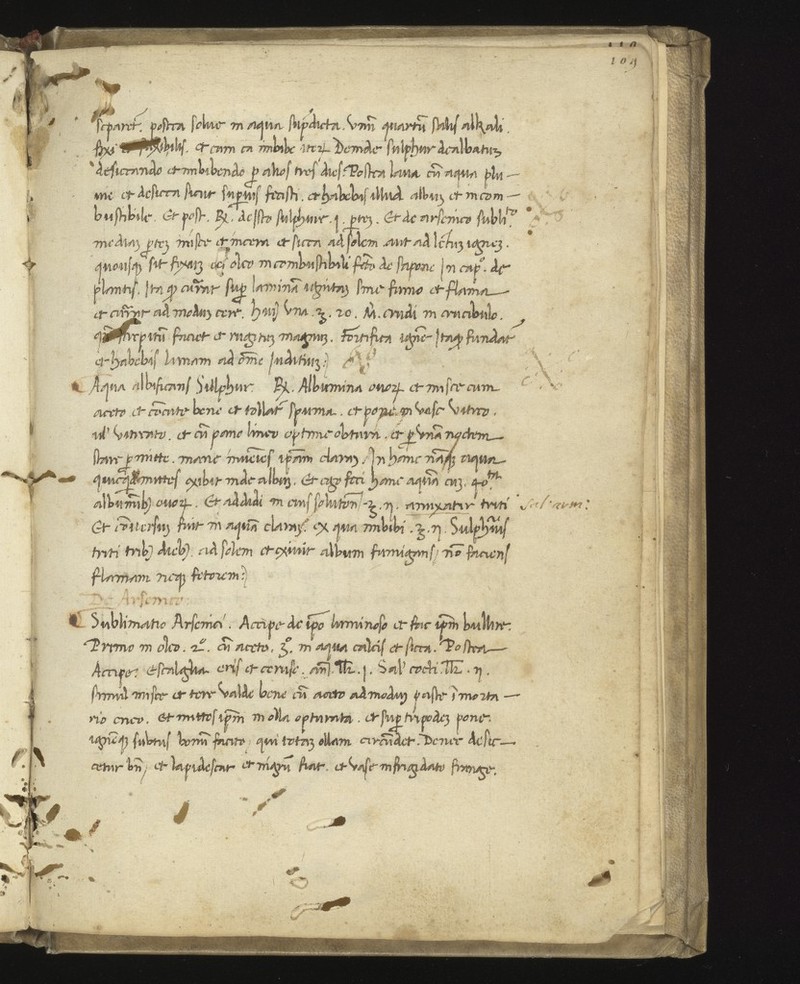 110
109
separet. postea solve in aqua supradicta. unam quartam salis alkali.
fixi et fusibilis. et cum ea imbibe iter. Deinde sulphur dealbatum
desiccando et imbibendo per alios tres dies. Postea lava cum aqua plu-
vie et desicca sicut superius fecisti. et habebis illud album et incom-
bustibile. Et post. Rx. de isto sulphure .i. partem. Et de arsenico subli.to
mediam partem misce et incera et sicca ad solem aut ad lentum ignem.
quousque sit fixatum oleo incombustibili facto de sapone In cap.o de
plantis. Ita quod currat super laminam ignitam sine fumo et flama
et currat ad modum cere. huius una .3. 20. M. crudi in crucibulo.
strepitum faciet et rugitum magnum. Fortifica ignem Itaque fundat
et habebis lunam ad omne Juditium:
Aqua albificans Sulphur. Rx. Albumina ovorum et misce cum
aceto et concute bene et tollatur spuma. et pone in vase vitreo.
vel vitriato. et cum pano lineo optime obtura. et per unam noctem
stare permitte. mane invenies ipsam claram. In hanc namque aqua
quicquid mittes exibit inde album. Et ego feci hanc aquam cum 40
albuminibus ovorum. Et addidi in eius solutione .3. ij. annixatir triti Sal arm:
Et conversum fuit in aquam claram. ex qua imbibi .3. ij. Sulphuris
triti tribus diebus. ad solem et exivit album fumigans, non faciens
flamam neque fetorem:
De Arsenico.
Sublimatio Arsenici. Accipe de ipso luminoso et fac ipsum bullire.
Primo in oleo. 2.o cum aceto. 3.o in aqua calcis et sicca. Postea
Accipe. Escalgua eris et ceruse. ana. lbr .i. Sal cocti lbr .ij.
simul misce et tere valde bene cum aceto ad modum paste in morta-
rio eneo. Et mittes ipsum in olla opturata. et super tripodem pone.
ignemque subtus bonum facito, qui totam ollam circumdet. Donec desic-
cetur bene, et lapidescat et nigrum fiat. et vase infrigidato frange.